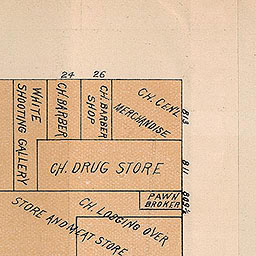 24 26
WHITE
SHOOTING GALLERY
CH. BARBER
CH. BARBER
SHOP
CH. GEN'L
MERCHANDISE
813
CH. DRUG STORE
811
PAWN
BROKER
809½
STORE AND MEAT STORE
CH. LODGING OVER